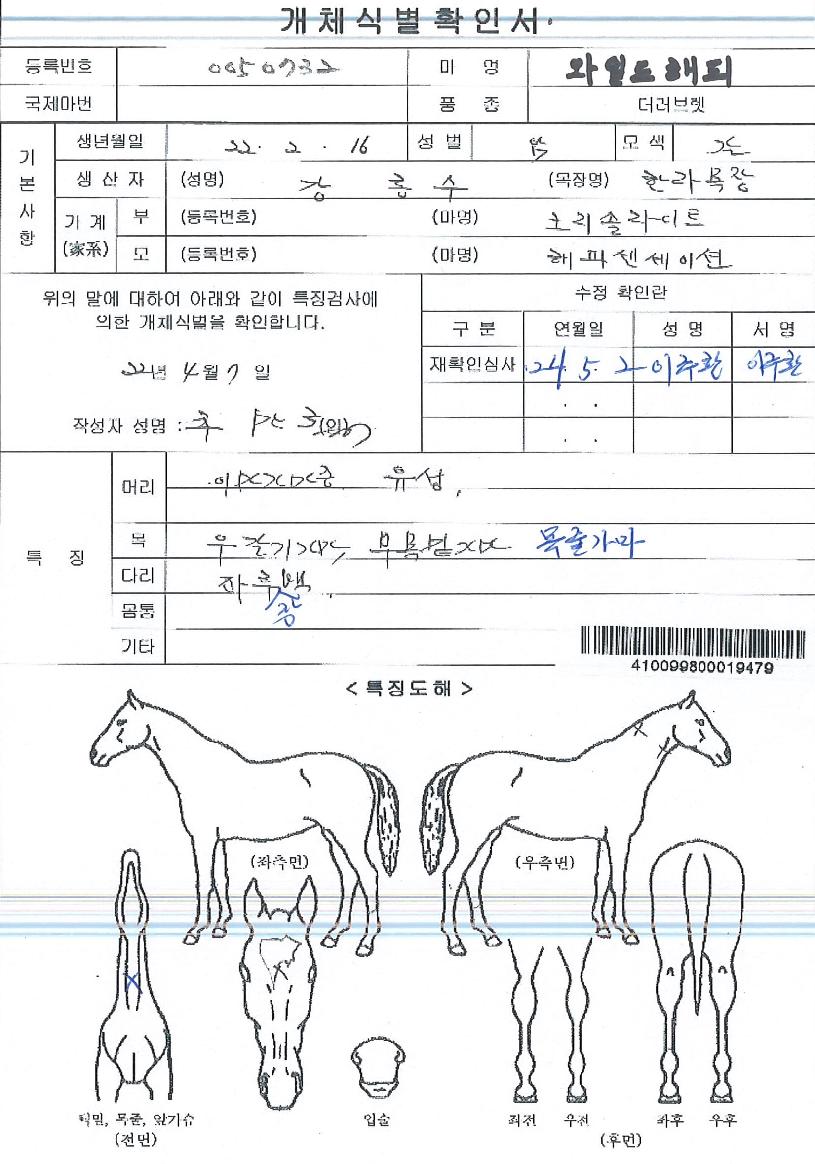 개체식별확인서
등록번호 0050732 마 명 와일드해피
국제마번 품 종 더러브렛
기본사항
생년월일 22. 2. 16 성 별 모 색 갈
생 산 자 (성명) 강 홍 수 (목장명) 한라목장
기 계 (家系)
부 (등록번호) (마명) 토리솔라이트
모 (등록번호) (마명) 해피센세이션
위의 말에 대하여 아래와 같이 특징검사에
의한 개체식별을 확인합니다.
22년 4월 7일
작성자 성명 :
수정 확인란
구 분 연월일 성 명 서 명
재확인심사 24. 5. 2 이주환 이주환
. .
. .
특 징
머리 유성,
목 목줄가마
다리 좌후 백.
몸통
기타
410099800019479
< 특징도해 >
(좌측면) (우측면)
턱밑, 목줄, 앞가슴
(전면)
입술
좌전 우전 좌후 우후
(후면)